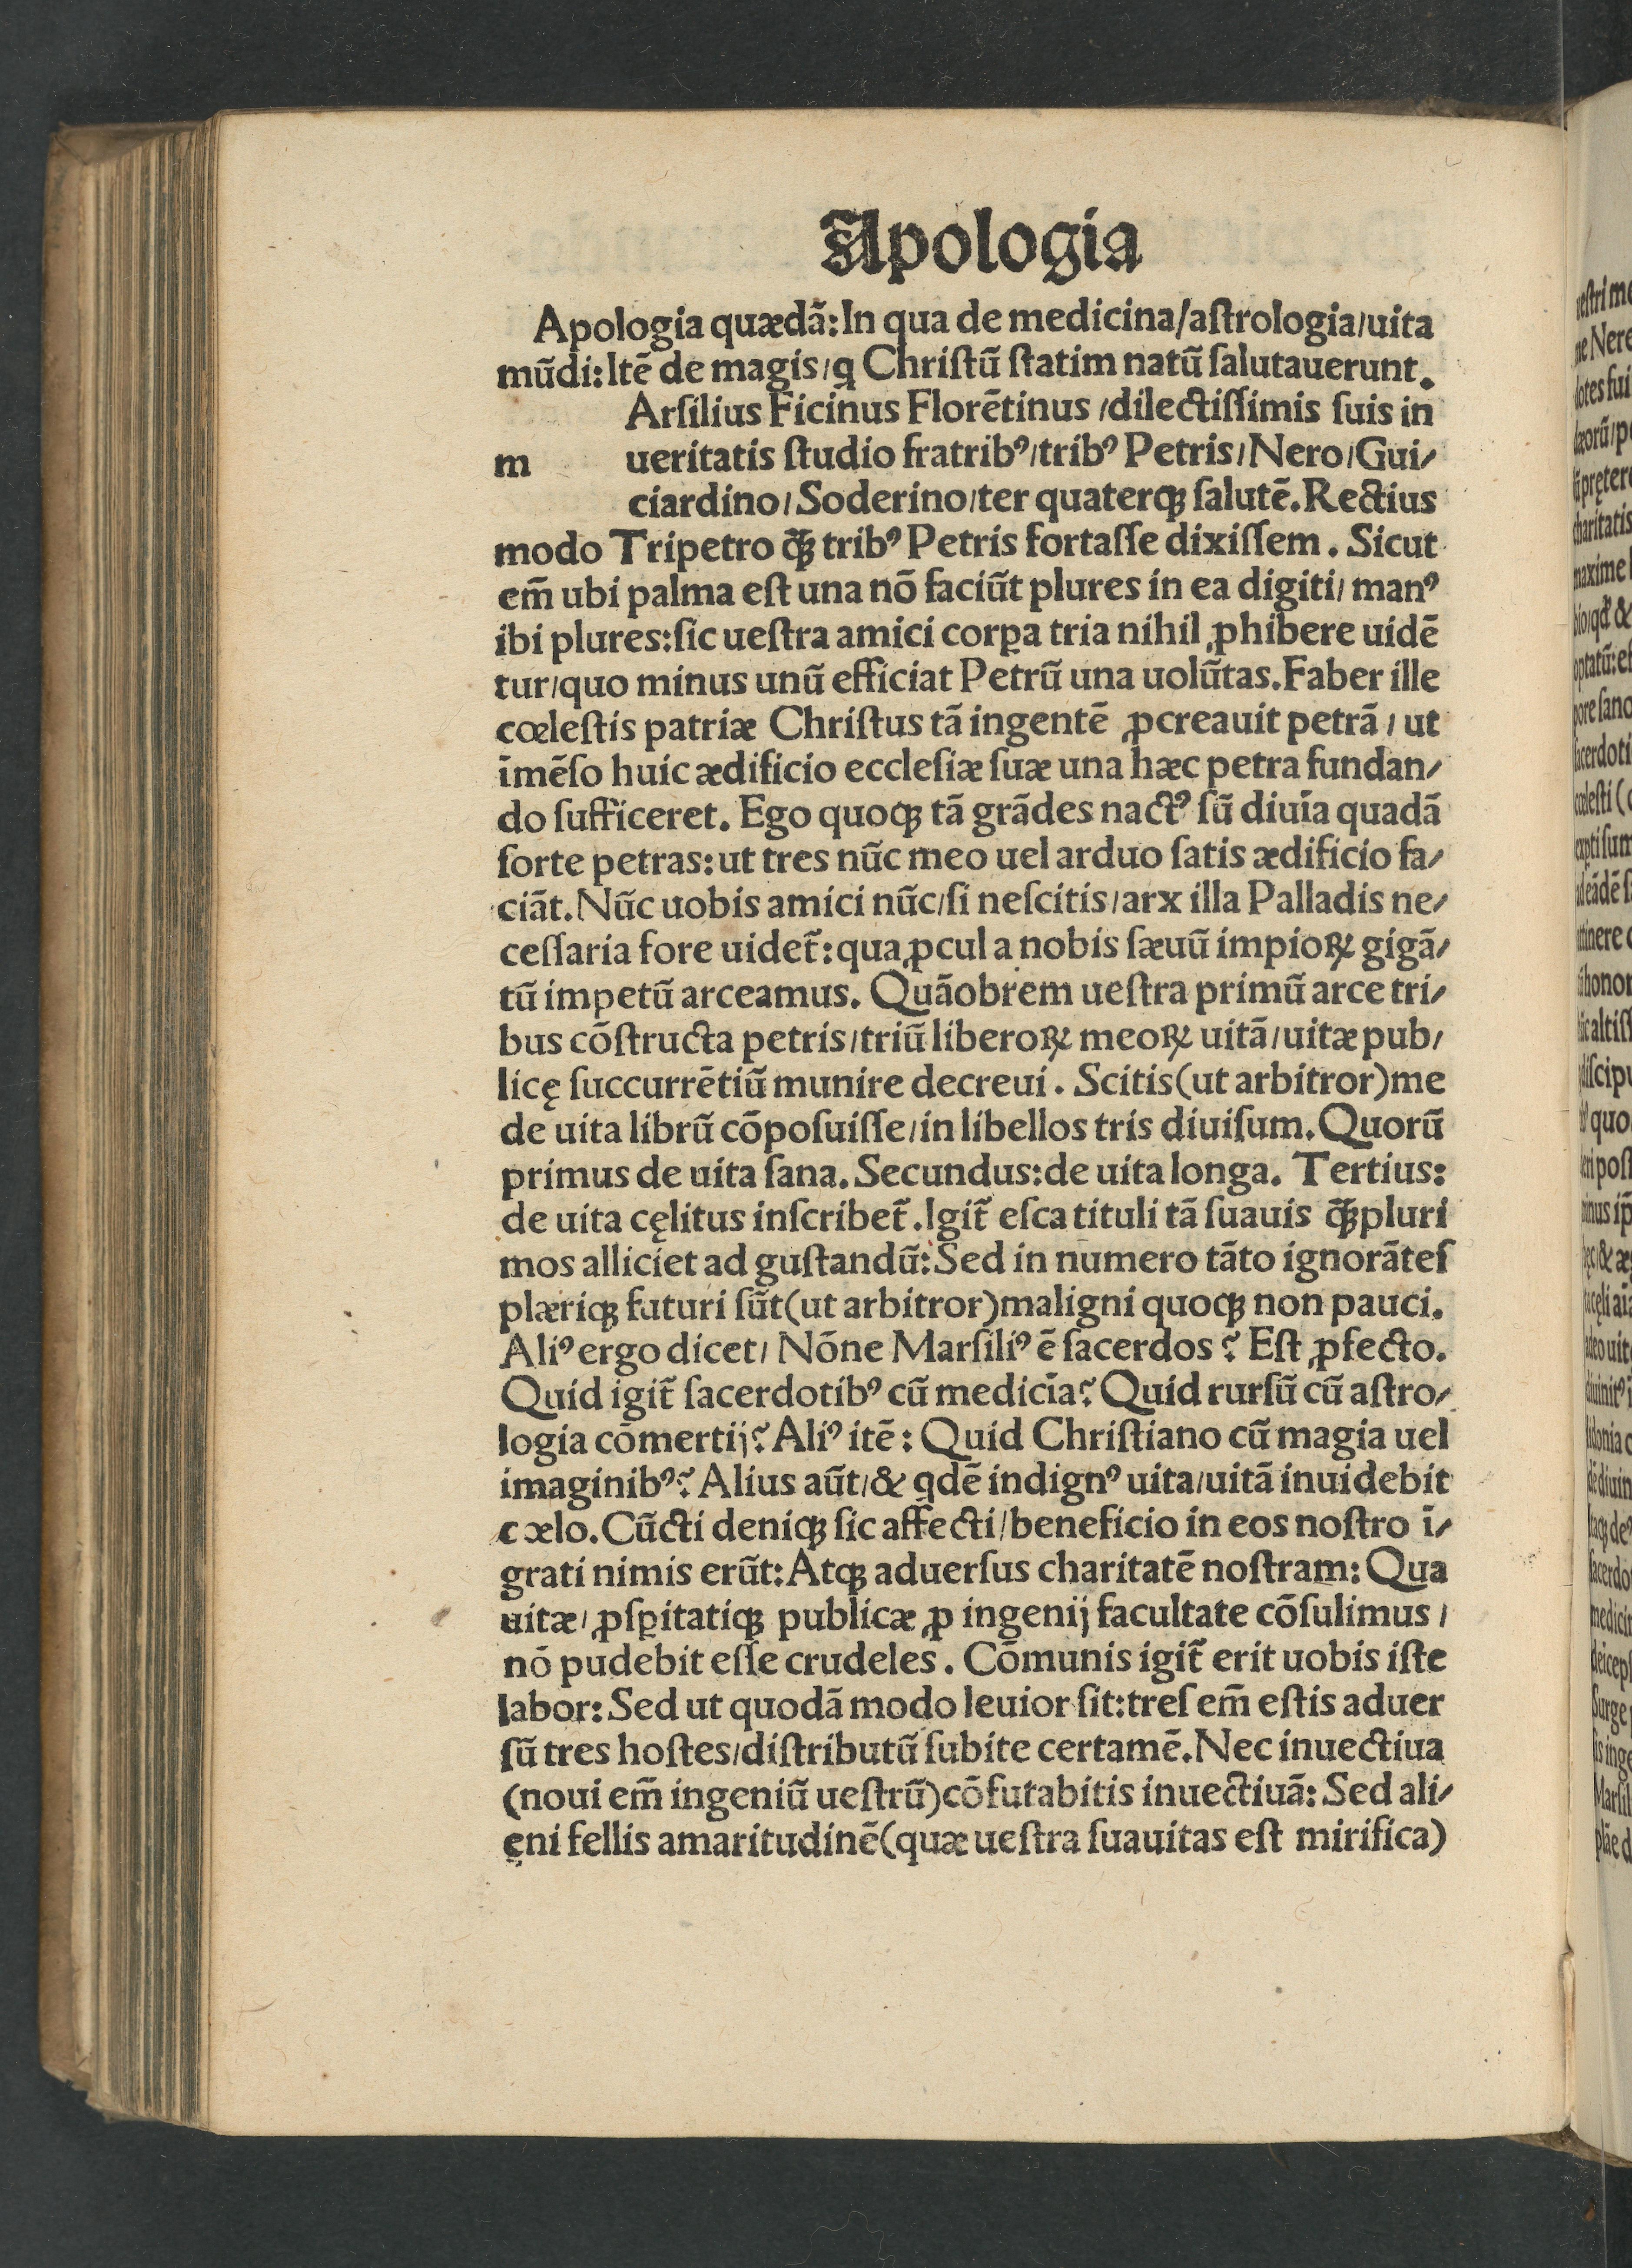 Apologia
Apologia quædã: In qua de medicina/aſtrologia/uita
mũdi: Itẽ de magis/q̃ Chriſtũ ſtatim natũ ſalutauerunt.
Arſilius Ficinus Florẽtinus /dilectiſſimis ſuis in
m ueritatis ſtudio fratribꝰ/tribꝰ Petris/Nero/Gui/
ciardino/Soderino/ter quaterqꝫ ſalutẽ. Rectius
modo Tripetro q̃ꝫ tribꝰ Petris fortaſſe dixiſſem. Sicut
em̃ ubi palma eſt una nõ faciũt plures in ea digiti/ manꝰ
ibi plures: ſic ueſtra amici corꝑa tria nihil ꝓhibere uidẽ
tur/quo minus unũ efficiat Petrũ una uolũtas. Faber ille
cœleſtis patriæ Chriſtus tã ingentẽ ꝓcreauit petrã/ ut
ĩmẽſo huic ædificio eccleſiæ ſuæ una hæc petra fundan/
do ſufficeret. Ego quoqꝫ tã grãdes nactꝰ ſũ diuĩa quadã
ſorte petras: ut tres nũc meo uel arduo ſatis ædificio fa/
ciãt. Nũc uobis amici nũc/ſi neſcitis/arx illa Palladis ne/
ceſſaria fore uidet̃: qua ꝓcul a nobis ſæuũ impioꝝ gigã/
tũ impetũ arceamus. Quãobrem ueſtra primũ arce tri/
bus cõſtructa petris/triũ liberoꝝ meoꝝ uitã/uitæ pub/
licę ſuccurrẽtiũ munire decreui. Scitis (ut arbitror) me
de uita librũ cõpoſuiſſe/in libellos tris diuiſum. Quorũ
primus de uita ſana. Secundus: de uita longa. Tertius:
de uita cęlitus inſcribet̃. Igit̃ eſca tituli tã ſuauis q̃ꝫ pluri
mos alliciet ad guſtandũ: Sed in numero tãto ignorãteſ
plæriqꝫ futuri ſũt (ut arbitror) maligni quoqꝫ non pauci.
Aliꝰ ergo dicet/ Nõne Marſiliꝰ ẽ ſacerdos? Eſt ꝓfecto.
Quid igit̃ ſacerdotibꝰ cũ medicĩa? Quid rurſũ cũ aſtro/
logia cõmertij? Aliꝰ itẽ: Quid Chriſtiano cũ magia uel
imaginibꝰ? Alius aũt/& q̃dẽ indignꝰ uita/uitã inuidebit
cælo. Cũcti deniqꝫ ſic affecti/beneficio in eos noſtro ĩ/
grati nimis erũt: Atqꝫ aduerſus charitatẽ noſtram: Qua
uitæ/ ꝓſꝑitatiqꝫ publicæ ꝓ ingenij facultate cõſulimus/
nõ pudebit eſſe crudeles. Cõmunis igit̃ erit uobis iſte
labor: Sed ut quodã modo leuior ſit: treſ em̃ eſtis aduer
ſũ tres hoſtes/diſtributũ ſubite certamẽ. Nec inuectiua
(noui em̃ ingeniũ ueſtrũ) cõfutabitis inuectiuã: Sed ali/
eni fellis amaritudinẽ (quæ ueſtra ſuauitas eſt mirifica)